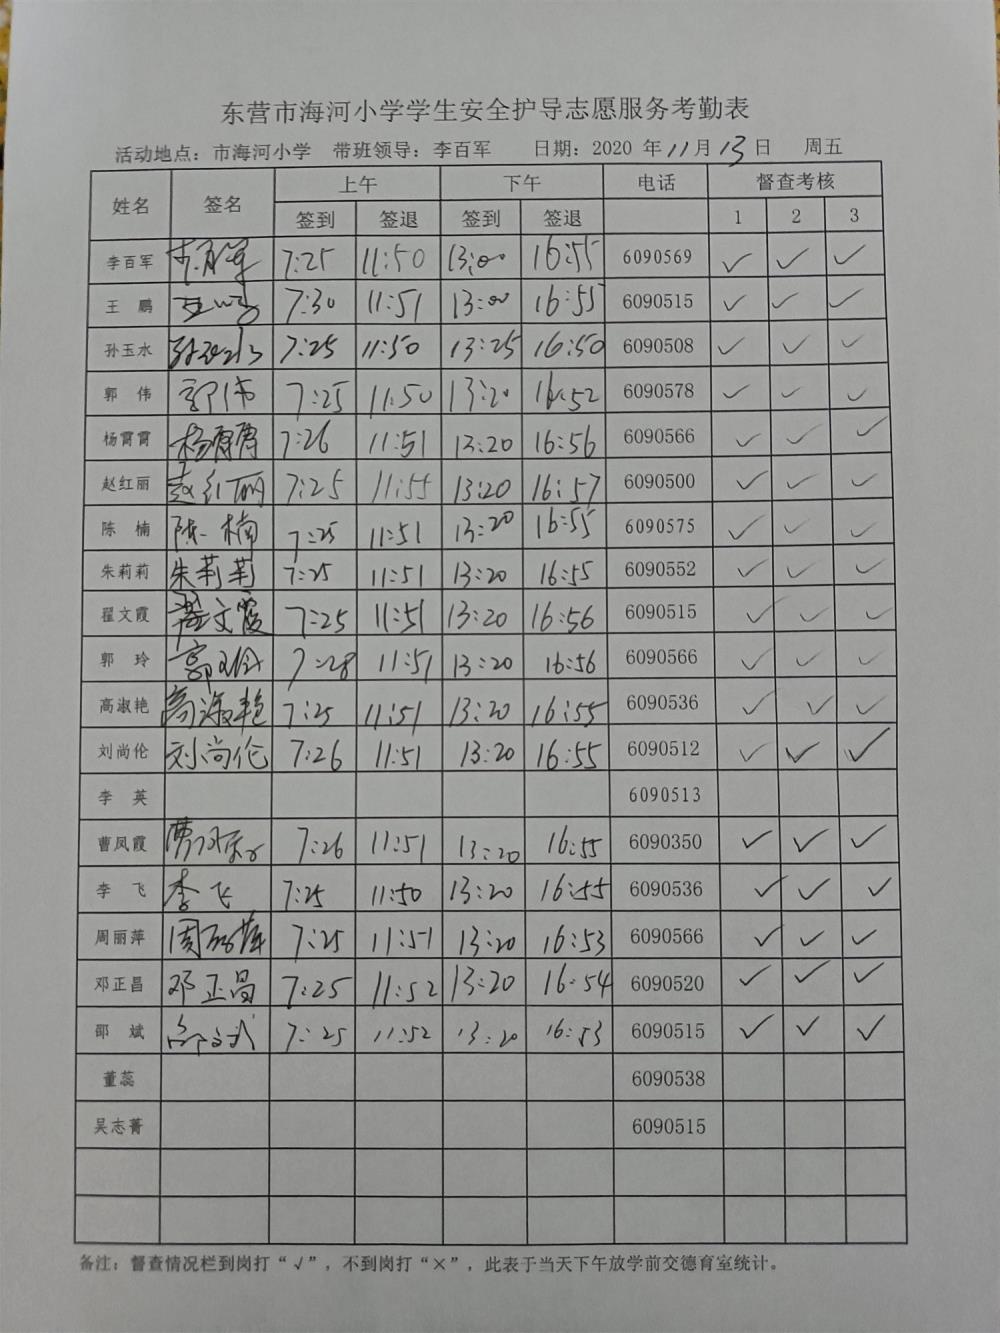 东营市海河小学学生安全护导志愿服务考勤表
活动地点：市海河小学 带班领导：李百军 日期：2020 年 11 月 13 日 周五
姓名 签名 上午 下午 电话 督查考核
签到 签退 签到 签退 1 2 3
李百军 李百军 7:25 11:50 13:00 16:55 6090569 ✓ ✓ ✓
王 鹏 王鹏 7:30 11:51 13:00 16:55 6090515 ✓ ✓ ✓
孙玉水 孙玉水 7:25 11:50 13:25 16:50 6090508 ✓ ✓ ✓
郭 伟 郭伟 7:25 11:50 13:20 16:52 6090578 ✓ ✓ ✓
杨霄霄 杨霄霄 7:26 11:51 13:20 16:56 6090566 ✓ ✓ ✓
赵红丽 赵红丽 7:25 11:55 13:20 16:57 6090500 ✓ ✓ ✓
陈 楠 陈楠 7:25 11:51 13:20 16:55 6090575 ✓ ✓ ✓
朱莉莉 朱莉莉 7:25 11:51 13:20 16:55 6090552 ✓ ✓ ✓
翟文霞 翟文霞 7:25 11:51 13:20 16:56 6090515 ✓ ✓ ✓
郭 玲 郭玲 7:28 11:51 13:20 16:56 6090566 ✓ ✓ ✓
高淑艳 高淑艳 7:25 11:51 13:20 16:55 6090536 ✓ ✓ ✓
刘尚伦 刘尚伦 7:26 11:51 13:20 16:55 6090512 ✓ ✓ ✓
李 英 6090513
曹凤霞 曹凤霞 7:26 11:51 13:20 16:55 6090350 ✓ ✓ ✓
李 飞 李飞 7:25 11:50 13:20 16:55 6090536 ✓ ✓ ✓
周丽萍 周丽萍 7:25 11:51 13:20 16:53 6090566 ✓ ✓ ✓
邓正昌 邓正昌 7:25 11:52 13:20 16:54 6090520 ✓ ✓ ✓
邵 斌 邵斌 7:25 11:52 13:20 16:53 6090515 ✓ ✓ ✓
董蕊 6090538
吴志菁 6090515
备注：督查情况栏到岗打“√”，不到岗打“×”，此表于当天下午放学前交德育室统计。